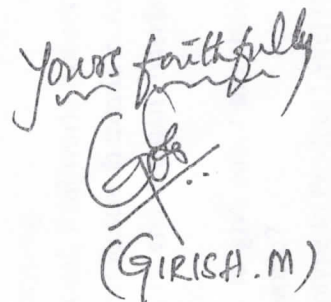 Yours faithfully
(GIRISH.M)